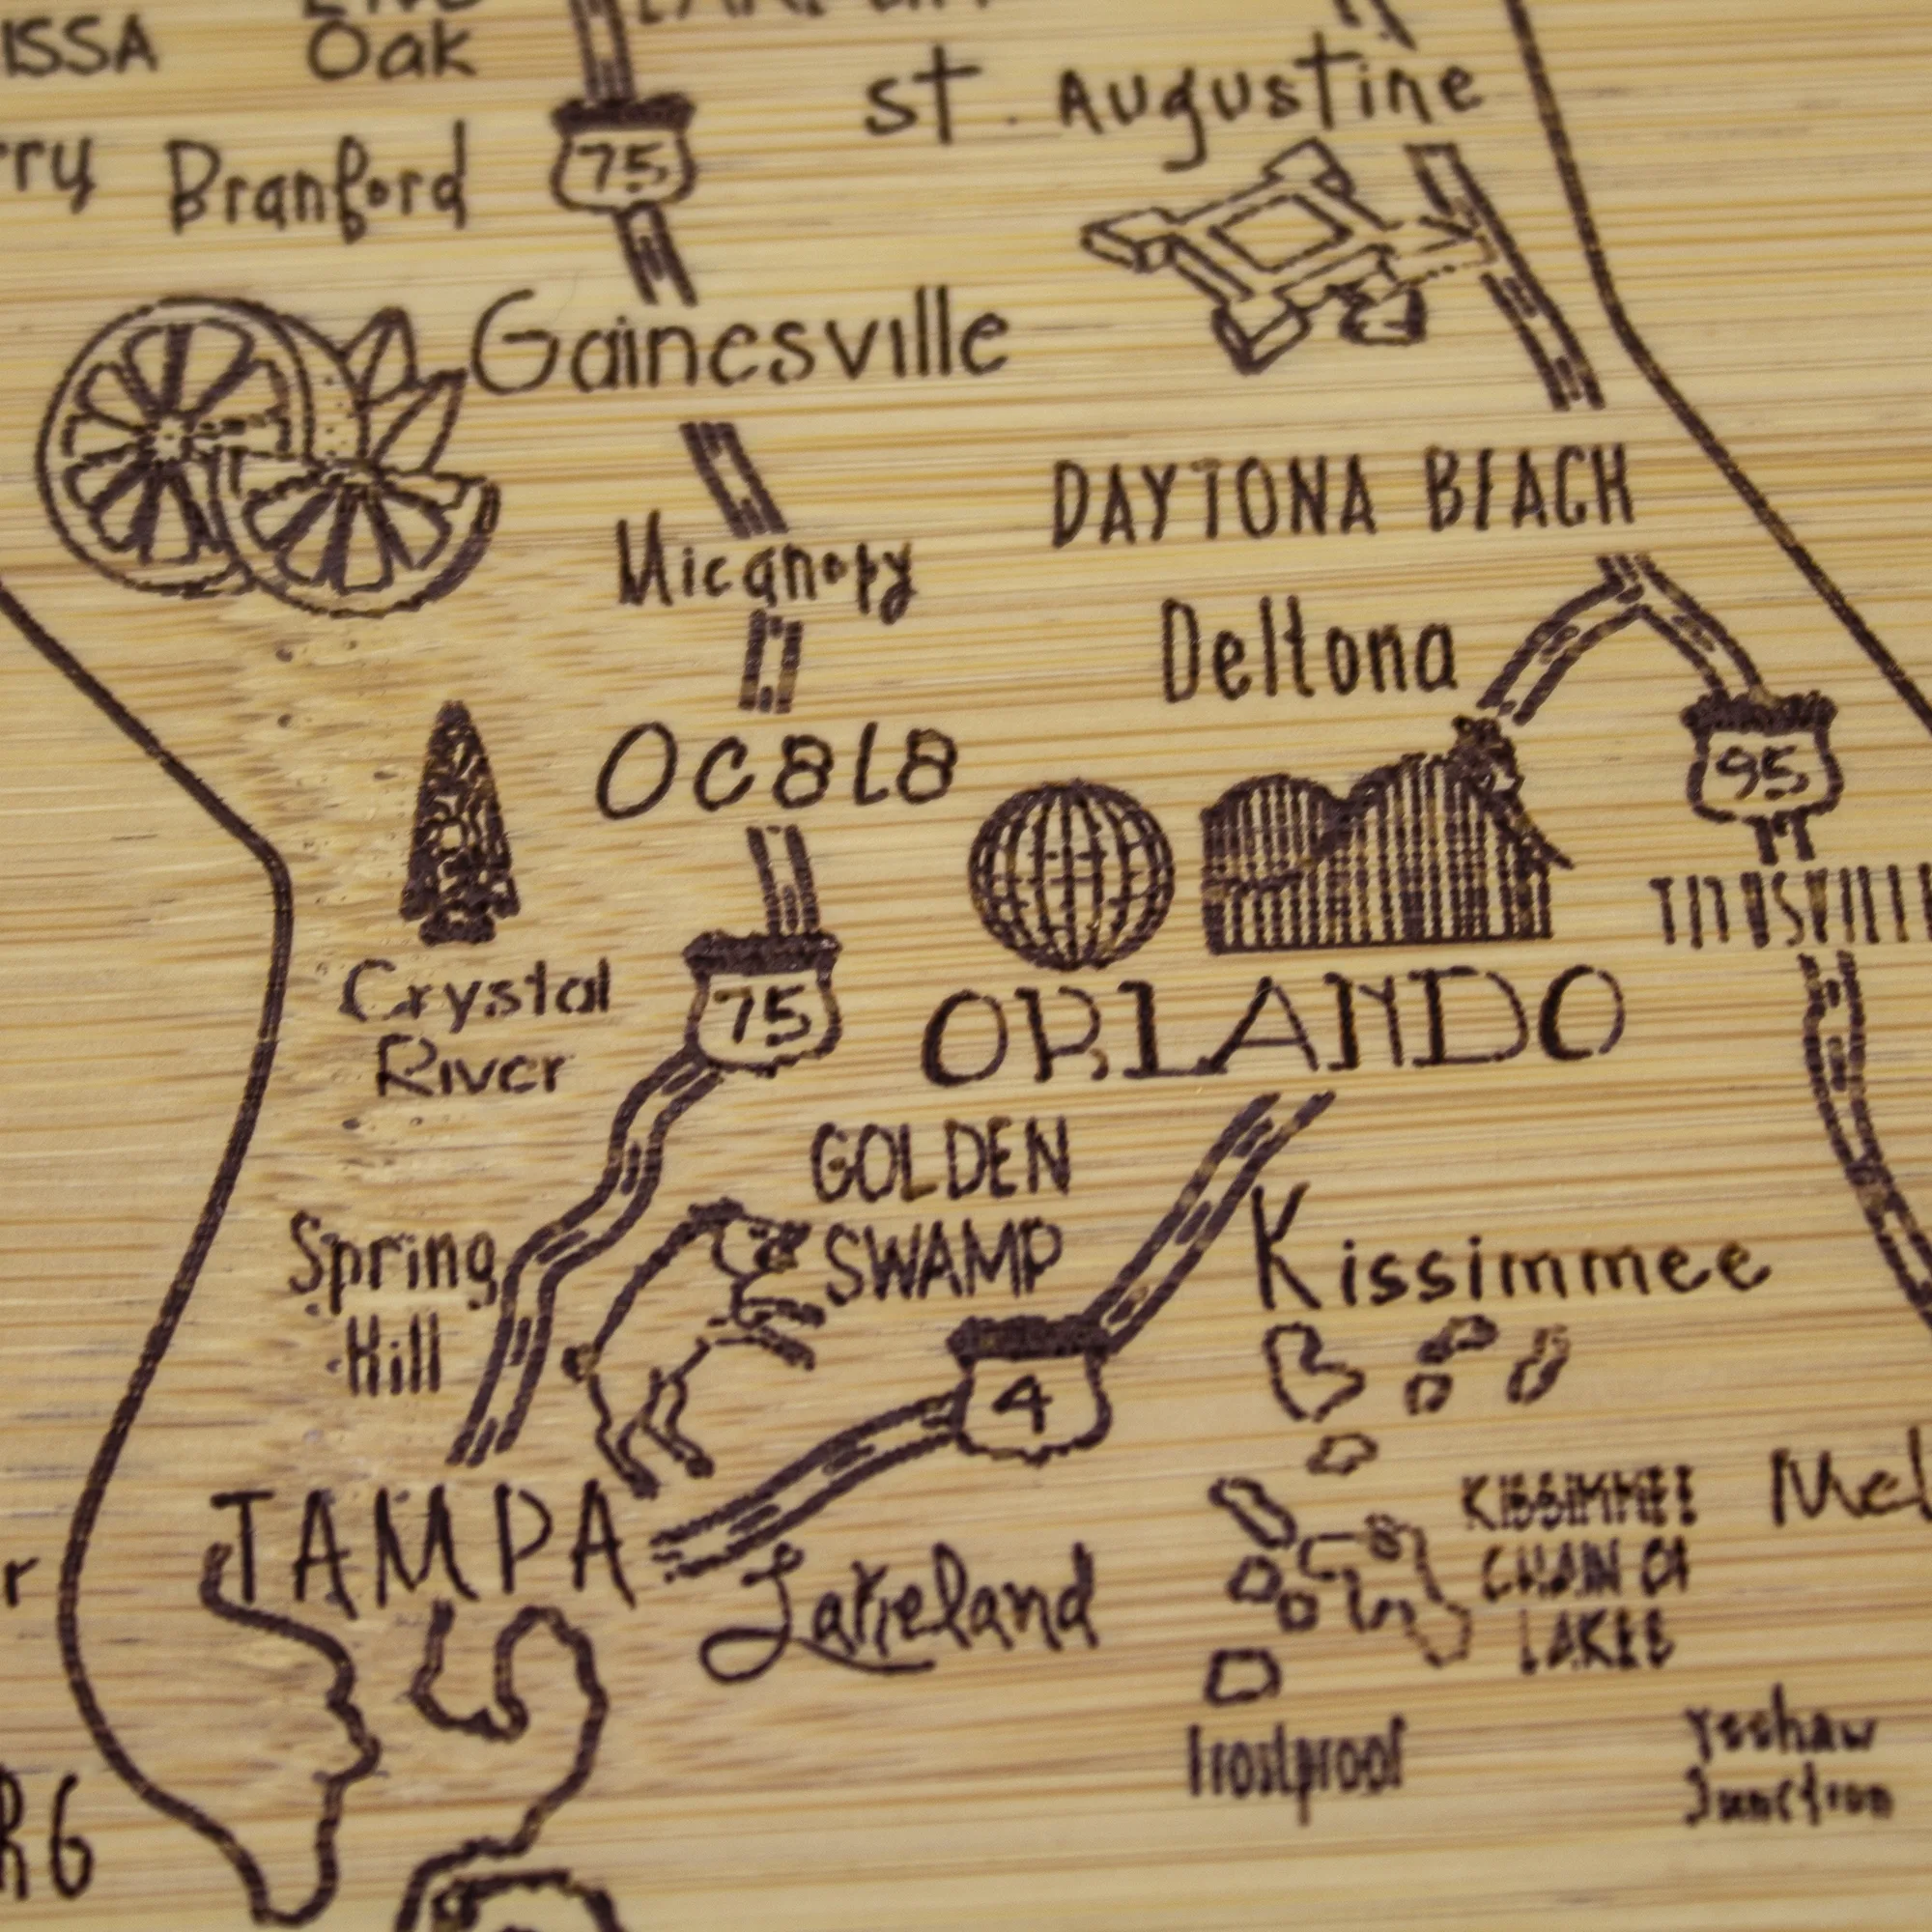 ISSA
Oak
St. Augustine
rry
Branford
75
Gainesville
DAYTONA BEACH
Micanopy
Deltona
Ocala
95
TITUSVILL
Crystal
River
75
ORLANDO
GOLDEN
SWAMP
Spring
Hill
Kissimmee
4
TAMPA
Lakeland
KISSIMMEE
CHAIN OF
LAKES
Mel
r
Frostproof
Yeehaw
Junction
RG